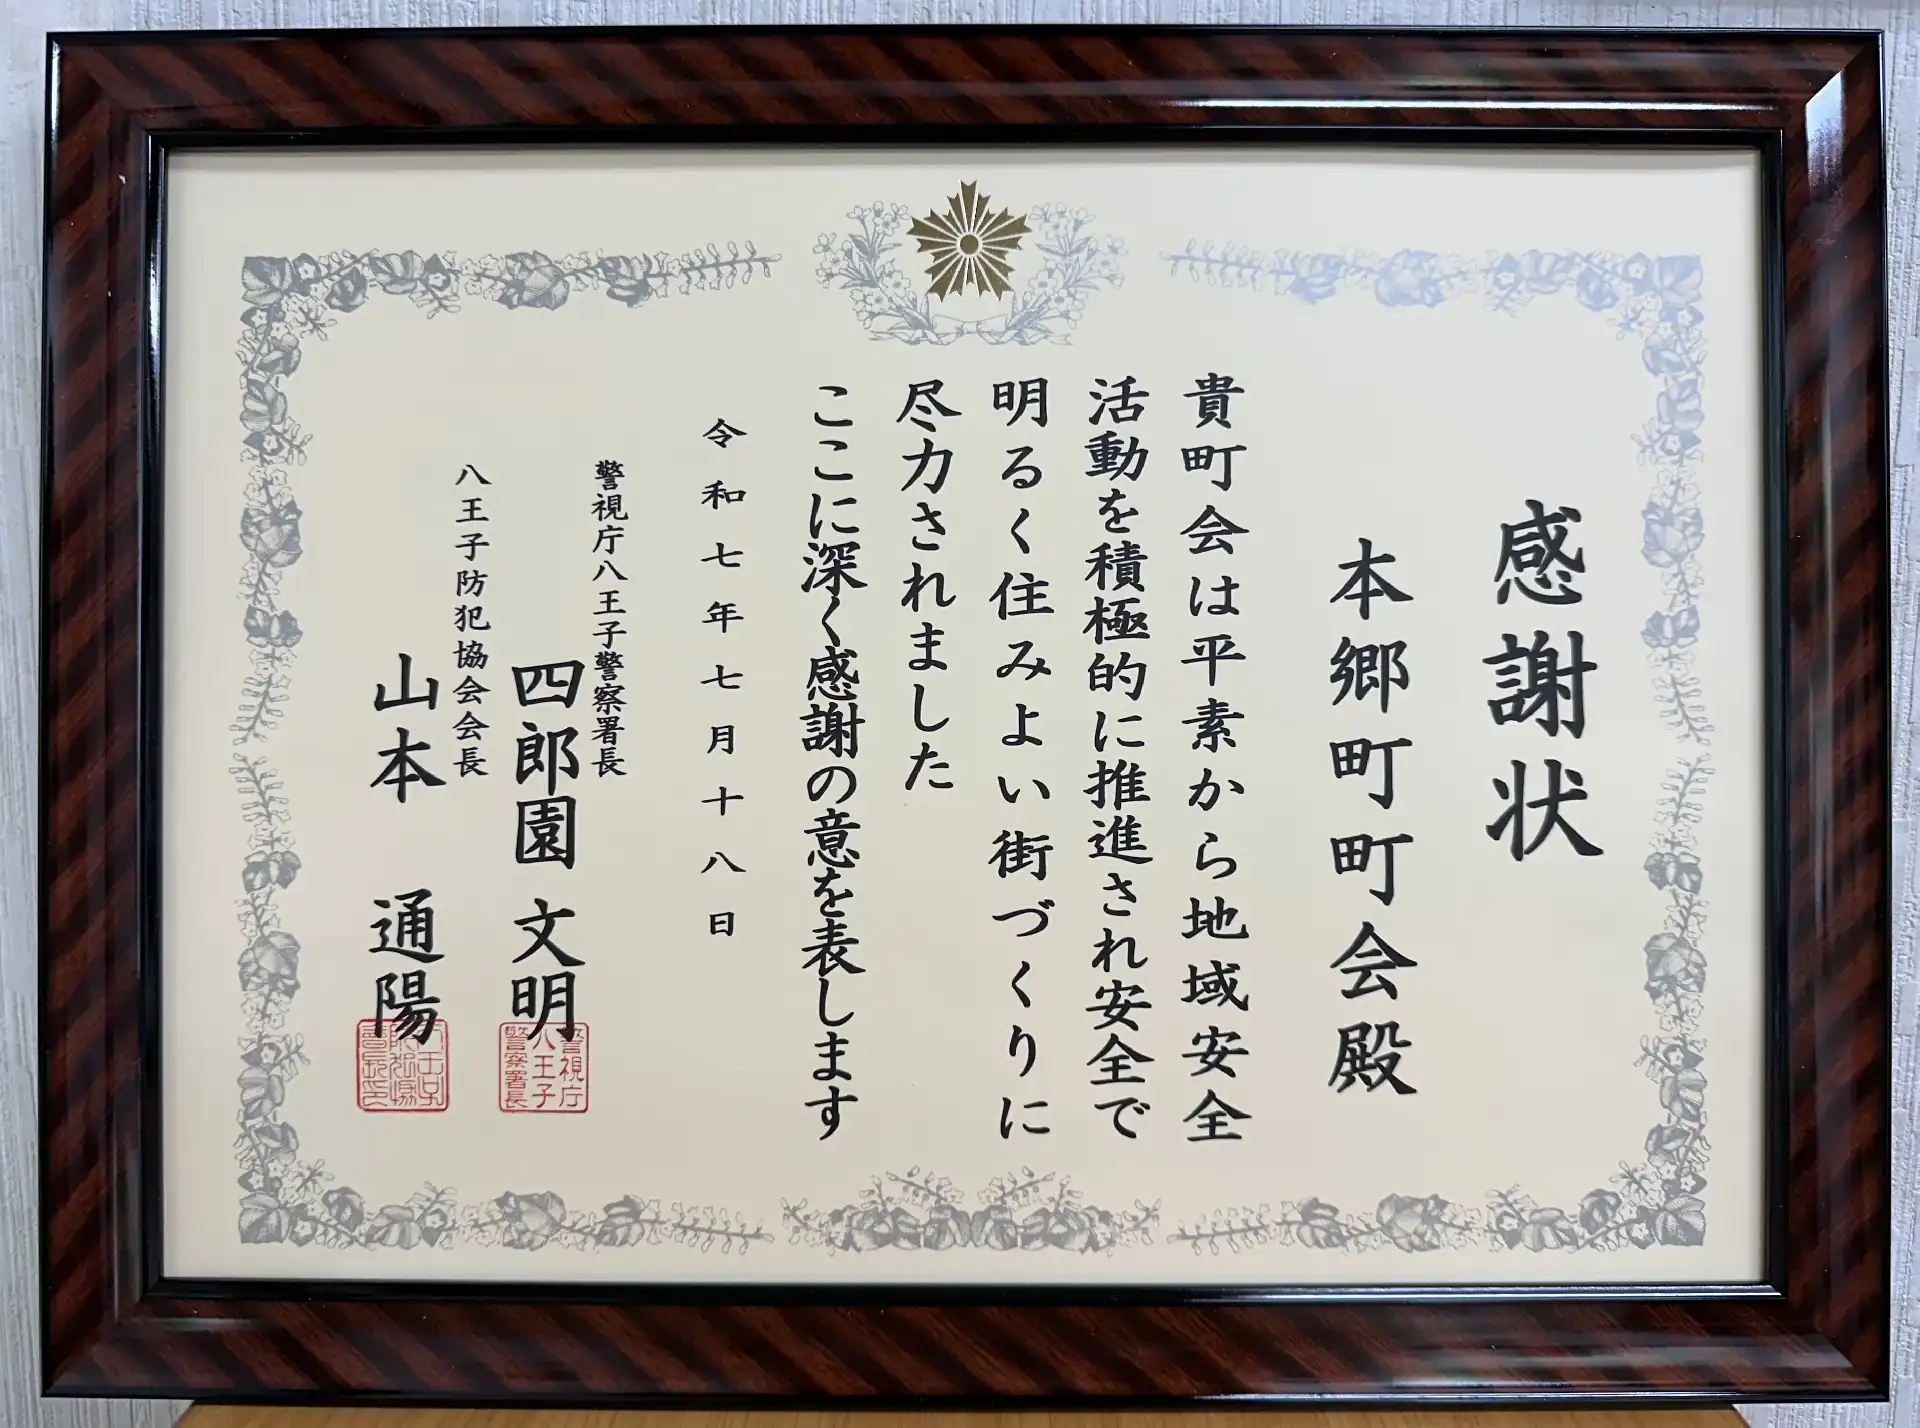 感謝状
本郷町町会殿
貴町会は平素から地域安全
活動を積極的に推進され安全で
明るく住みよい街づくりに
尽力されました
ここに深く感謝の意を表します
令和七年七月十八日
警視庁八王子警察署長
四郎園文明
警視庁
八王子
警察署長
八王子防犯協会会長
山本 通陽